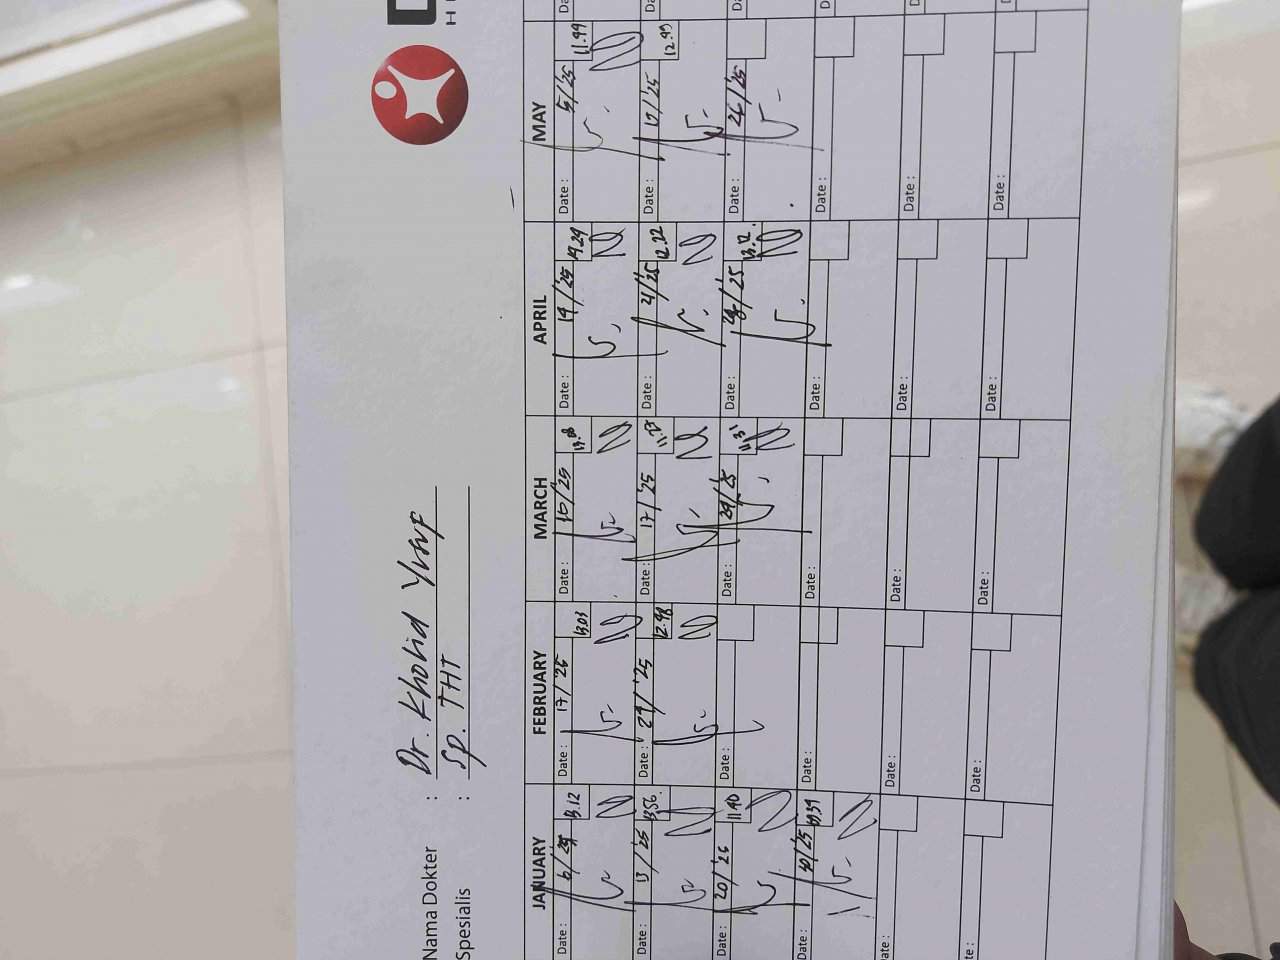 Nama Dokter : Dr. Kholid Yusuf
Spesialis : Sp. THT
JANUARY FEBRUARY MARCH APRIL MAY
Date : 6/'25 13.12 Date : 17/'25 13.03 Date : 10/'25 13.08 Date : 14/'25 14.24 Date : 5/'25 11.44
Date : 13/'25 13.56 Date : 24/'25 12.48 Date : 17/'25 11.17 Date : 21/'25 12.22 Date : 12/'25 12.43
Date : 20/'25 11.40 Date : Date : 24/'25 11.31 Date : 28/'25 13.12 Date : 26/'25
Date : /25 Date : Date : Date : Date :
Date : Date : Date : Date : Date :
Date : Date : Date : Date :